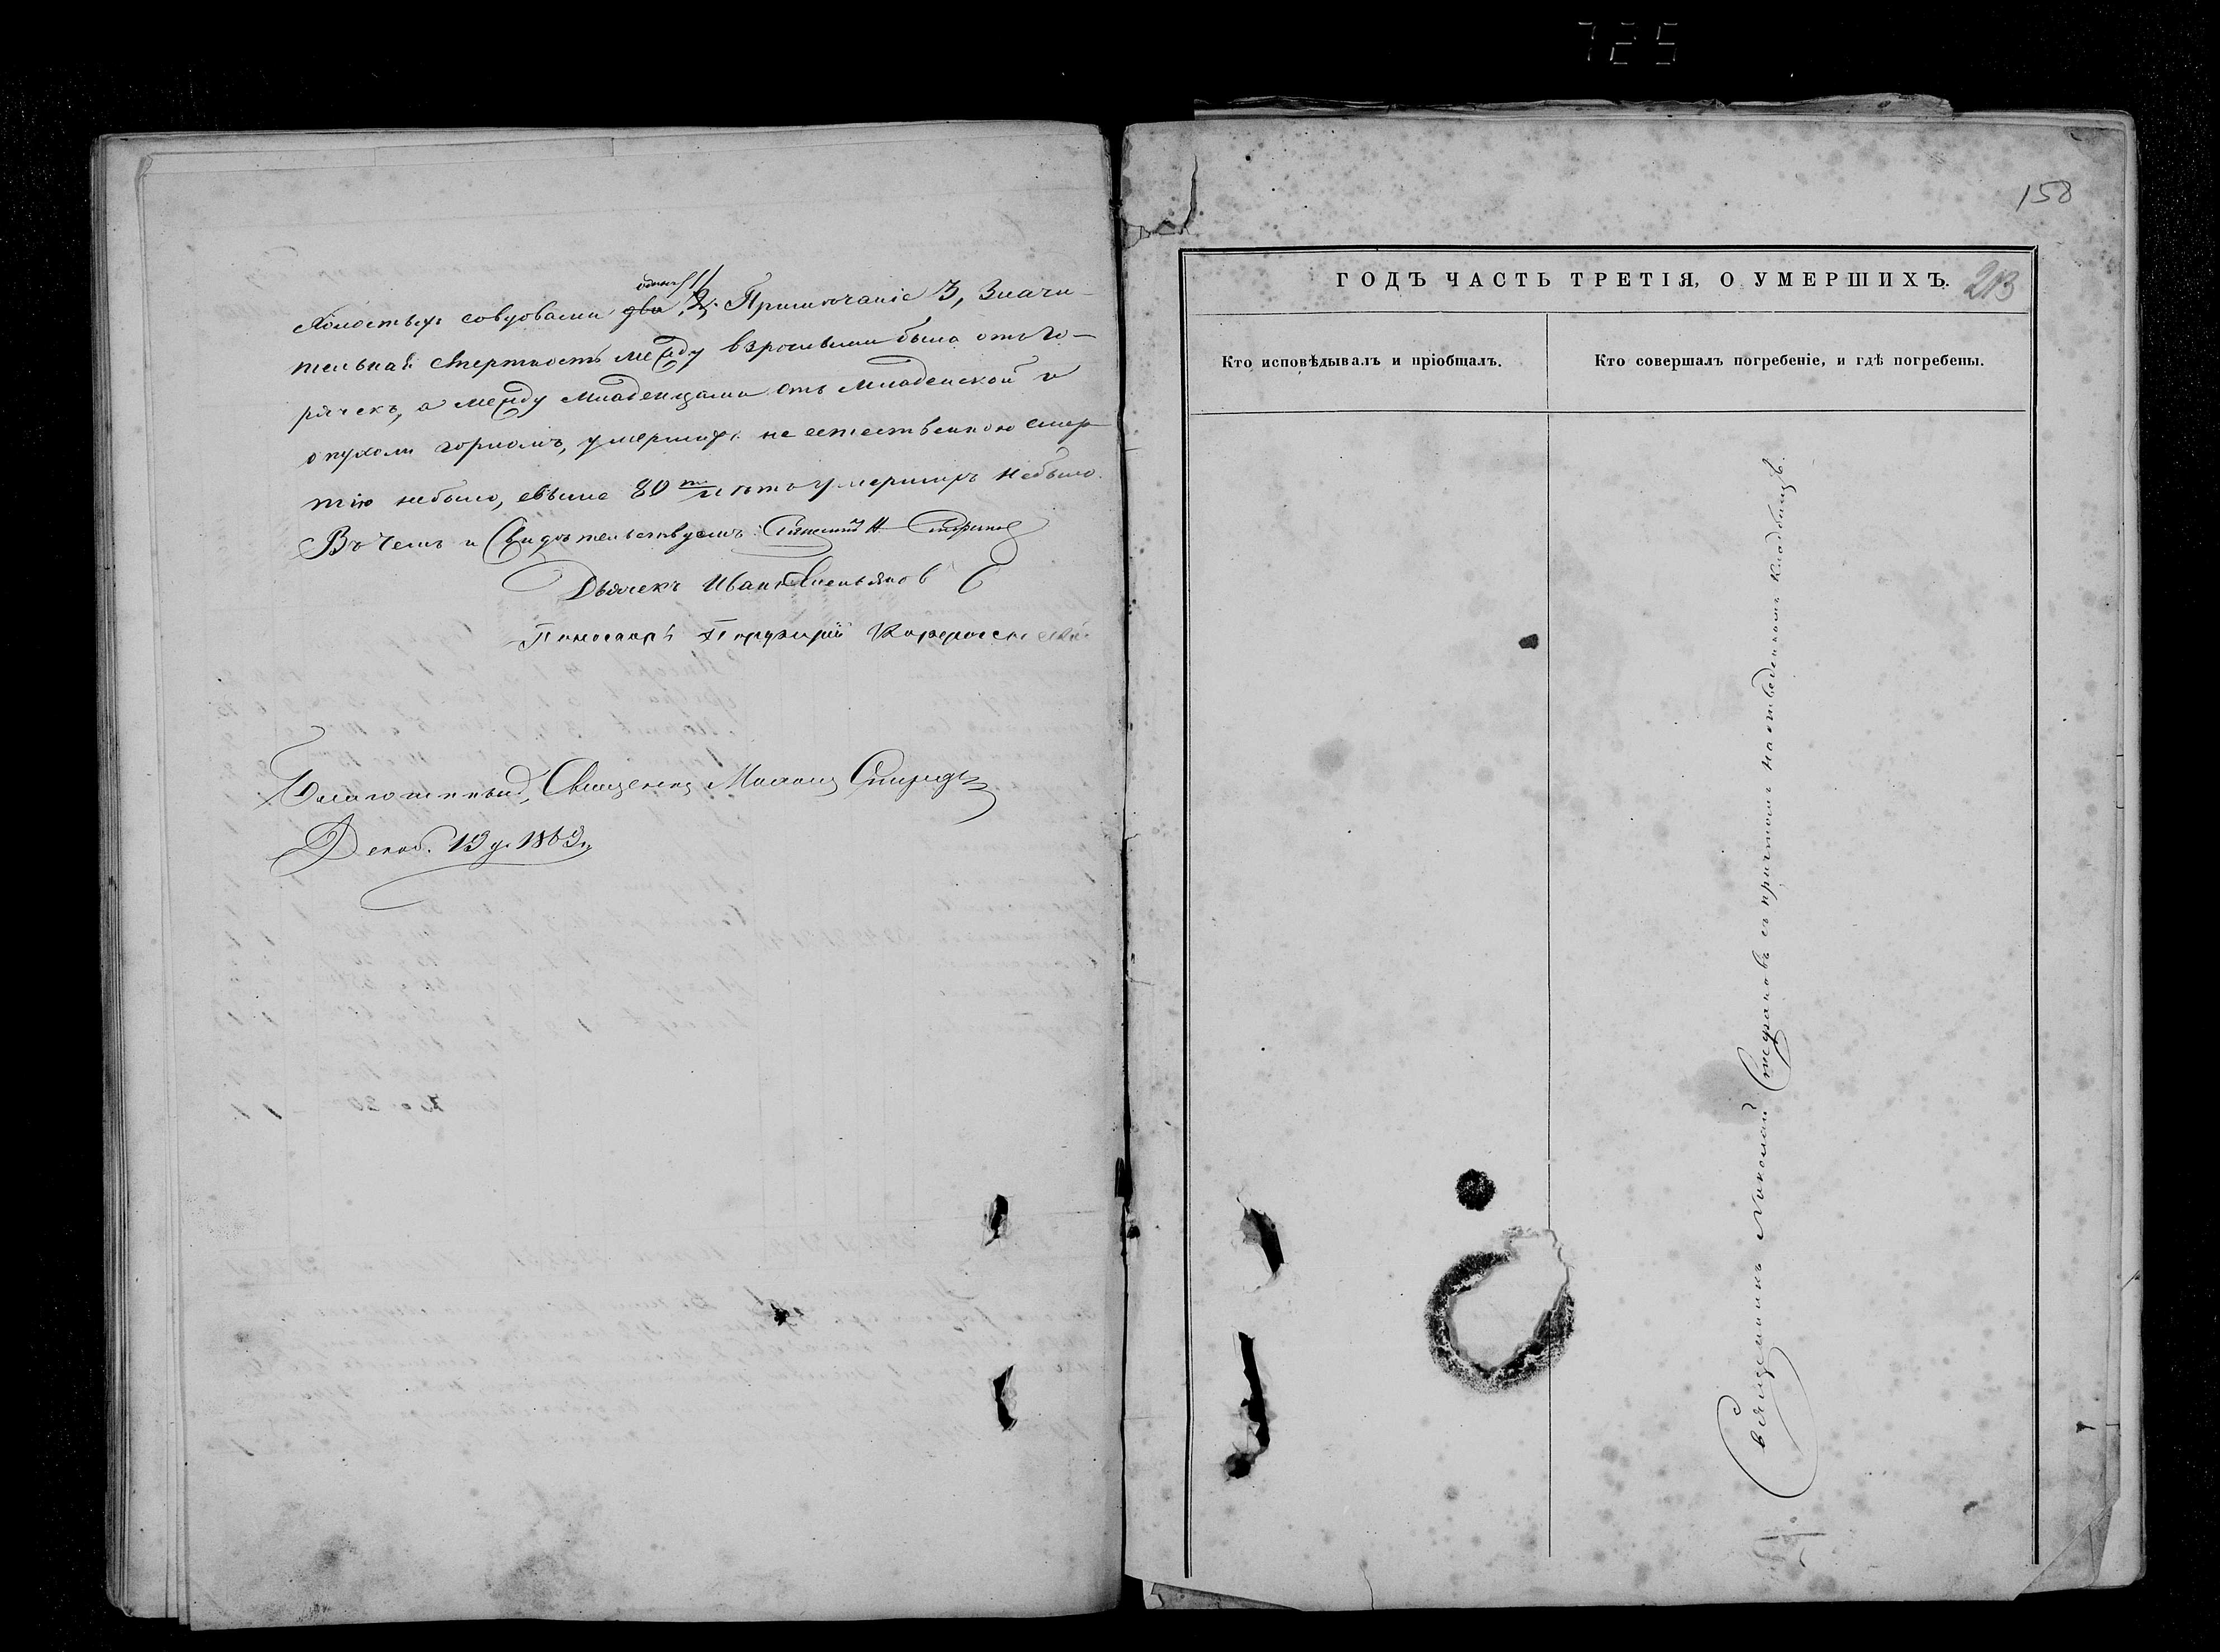 725
Холостыхъ со вдовами два 2. Примѣчаніе 3, Значи-
тельная смертность между взрослыми была отъ го-
рячекъ, а между младенцами отъ младенской и
опухоли горломъ, умершихъ не естественною смер-
тію небыло, свыше 80ти лѣтъ умершихъ небыло.
Въ чемъ и Свидѣтельствуемъ:
Дьячекъ Иванъ
Пономарь Порфирій
Благочинный, Священникъ
Декаб. 19 д. 1863 г.
158
ГОДЪ ЧАСТЬ ТРЕТІЯ, О УМЕРШИХЪ. 213
Кто исповѣдывалъ и пріобщалъ.
Кто совершалъ погребеніе, и гдѣ погребены.
Священникъ Николай Стефановъ съ причтомъ на отведенномъ кладбищѣ.